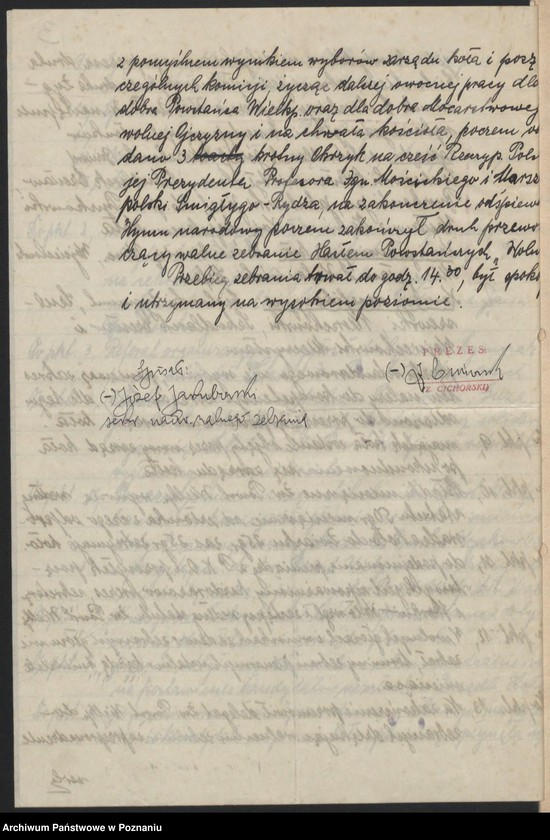 z pomyślnem wynikiem wyborów zarządu koła i posz
czególnych komisji, życząc dalszej owocnej pracy dla
dobra Powstańca Wielkp. oraz dla dobra mocarstwowej
wolnej Ojczyzny i na chwałę kościoła, poczem
dano 3 krotny Okrzyk na cześć Rzeczyp. Pols
jej Prezydenta Profesora Ign. Mościckiego i Marsz.
polski Śmigłygo-Rydza, na zakończenie odśpiewa
Hymn narodowy poczem zakończył druh przewo
czący walne zebranie Hasłem Powstańczych „Woln
Przebieg zebrania trwał do godz. 14.30, był spoko
i utrzymany na wysokiem poziomie.
PREZES:
(-)
(Z. CICHORSKI)
(-) Józef Jakubowski
sekr. nadzw. walnego zebrania
Archiwum Państwowe w Poznaniu